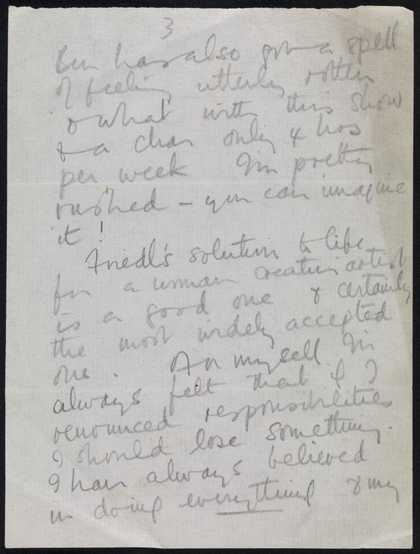 3
Ken has also got a spell
of feeling utterly rotten
& what with this show
& a char only 4 hrs
per week I'm pretty
rushed – you can imagine
it!
Friedl's solution to life
for a woman creative artist
is a good one & certainly
the most widely accepted
one. For myself I'm
always felt that if I
renounced responsibilities
I should lose something.
I have always believed
in doing everything & my